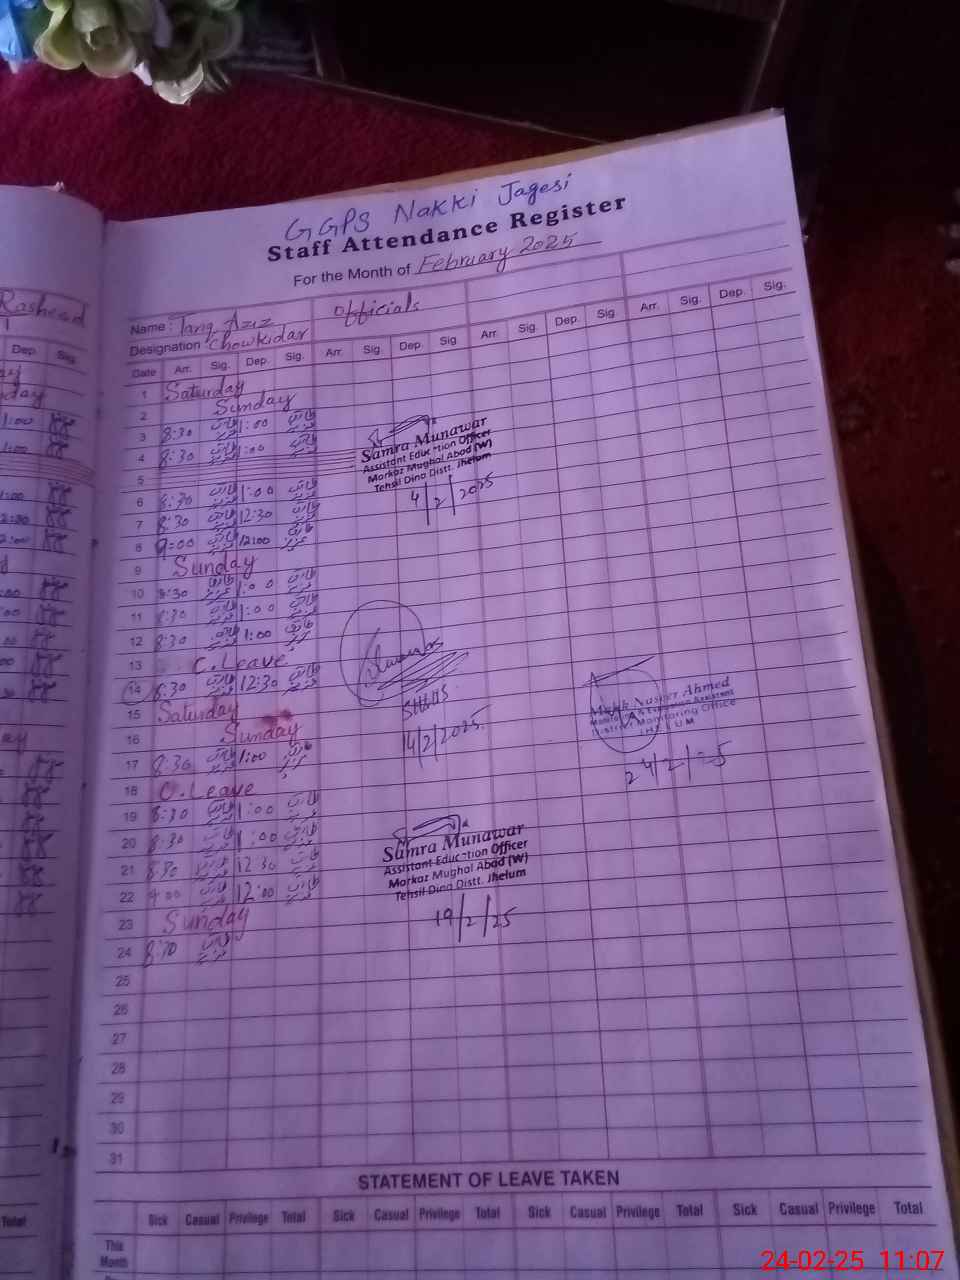 GGPS Nakki Jagesi
Staff Attendance Register
For the Month of February 2025
Rasheed
Name: Tariq Aziz Officials
Designation: Chowkidar
Dep. Sig.
Date Arr. Sig. Dep. Sig. Arr. Sig. Dep. Sig Arr. Sig. Dep. Sig. Arr. Sig. Dep. Sig.
1 Saturday
2 Sunday
3 8:30 طارق عزیز 1:00 طارق عزیز
4 8:30 طارق عزیز 1:00 طارق عزیز
Samra Munawar
Assistant Education Officer
Markaz Mughal Abad (W)
Tehsil Dina Distt. Jhelum
4/2/2025
5
6 8:30 طارق عزیز 1:00 طارق عزیز
7 8:30 طارق عزیز 12:30 طارق عزیز
8 9:00 طارق عزیز 12:00 طارق عزیز
9 Sunday
10 8:30 طارق عزیز 1:00 طارق عزیز
11 8:30 طارق عزیز 1:00 طارق عزیز
12 8:30 طارق عزیز 1:00 طارق عزیز
13 C.Leave
14 8:30 طارق عزیز 12:30 طارق عزیز
15 Saturday
16 Sunday
14/2/2025
17 8:30 طارق عزیز 1:00 طارق عزیز
Malik Naseer Ahmed
Monitoring & Evaluation Assistant
District Monitoring Office
JHELUM
24/2/25
18 C.Leave
19 8:30 طارق عزیز 1:00 طارق عزیز
20 8:30 طارق عزیز 1:00 طارق عزیز
21 8:30 طارق عزیز 12:30 طارق عزیز
22 9:00 طارق عزیز 12:00 طارق عزیز
Samra Munawar
Assistant Education Officer
Markaz Mughal Abad (W)
Tehsil Dina Distt. Jhelum
19/2/25
23 Sunday
24 8:30 طارق عزیز
25
26
27
28
29
30
31
STATEMENT OF LEAVE TAKEN
Total
Sick Casual Privilege Total Sick Casual Privilege Total Sick Casual Privilege Total Sick Casual Privilege Total
This
Month
24-02-25 11:07